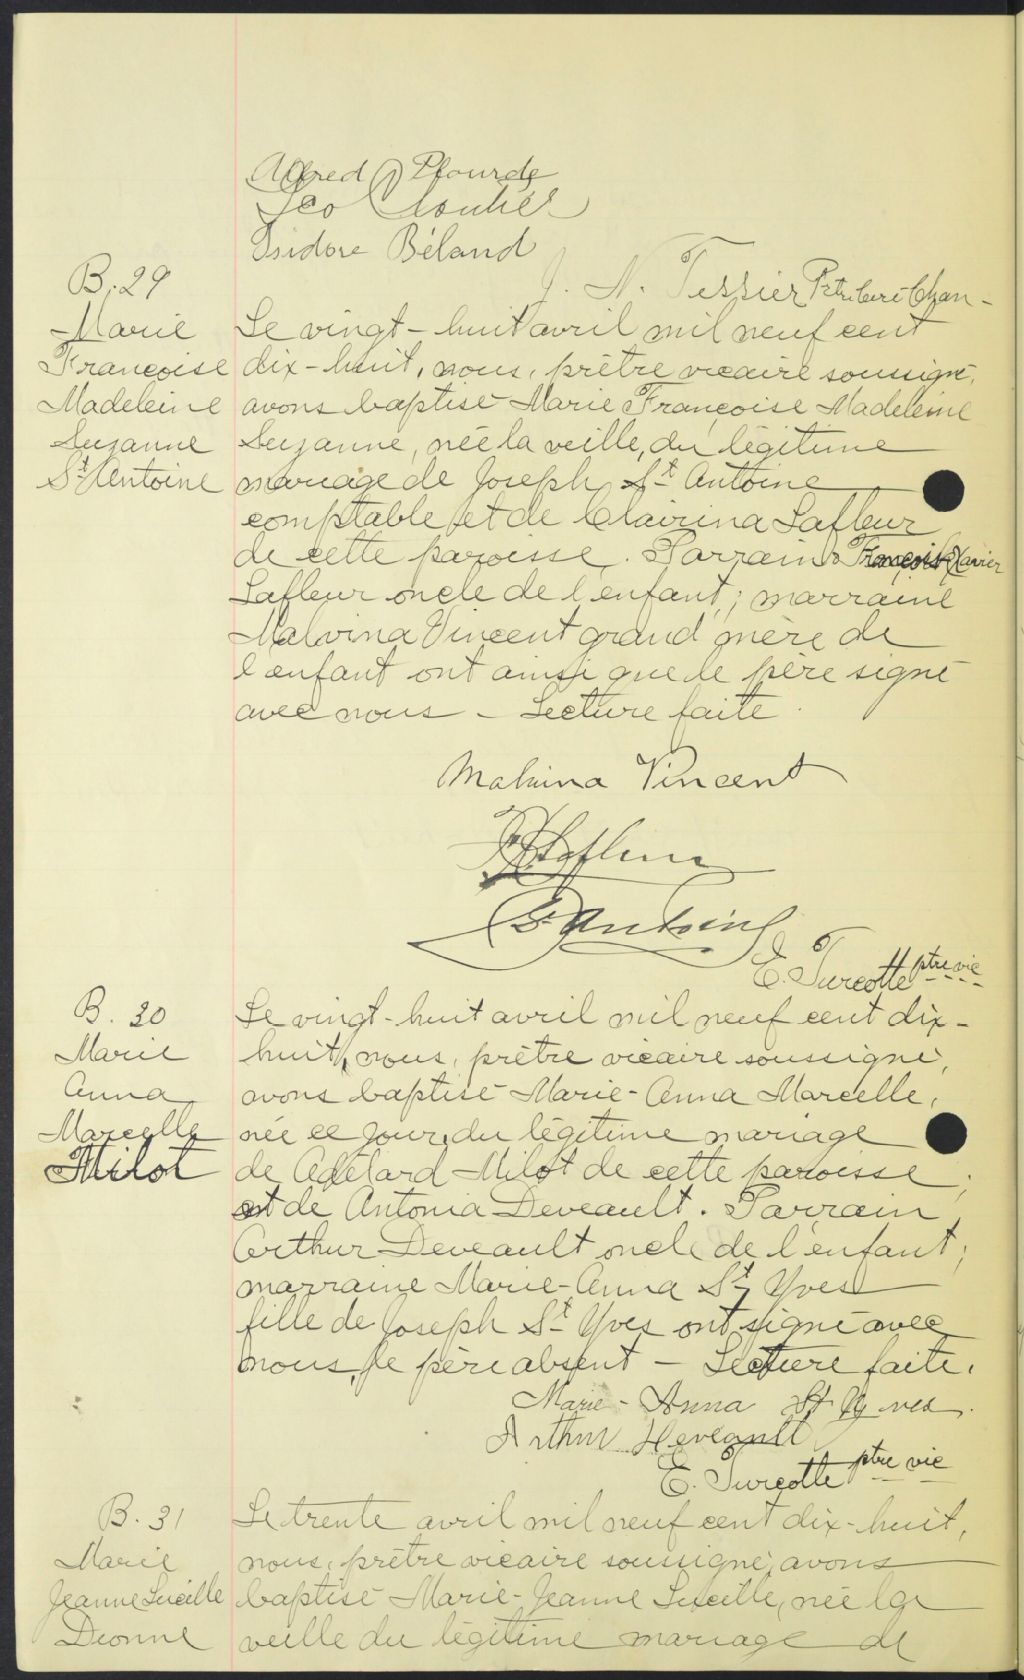 Alfred Plourde
Leo Cloutier
Isidore Béland
J. N. Tessier Ptre Curé Chan-
B. 29
Marie
Françoise
Madeleine
Suzanne
St Antoine
Le vingt-huit avril mil neuf cent
dix-huit, nous, prêtre vicaire soussigné,
avons baptisé Marie Françoise Madeleine
Suzanne, née la veille, du légitime
mariage de Joseph St Antoine
comptable et de Clairina Lafleur
de cette paroisse. Parrain François Xavier
Lafleur oncle de l'enfant; marraine
Malvina Vincent grand'mère de
l'enfant ont ainsi que le père signé
avec nous - Lecture faite.
Malvina Vincent
F X Lafleur
St Antoine
E. Turcotte ptre vic
B. 30
Marie
Anna
Marcelle
Milot
Le vingt-huit avril mil neuf cent dix-
huit, nous, prêtre vicaire soussigné,
avons baptisé Marie-Anna Marcelle,
née ce jour, du légitime mariage
de Adélard Milot de cette paroisse,
et de Antonia Deveault. Parrain
Arthur Deveault oncle de l'enfant;
marraine Marie-Anna St Yves
fille de Joseph St Yves ont signé avec
nous, le père absent - Lecture faite.
Marie-Anna St Yves.
Arthur Deveault
E. Turcotte ptre vic
B. 31
Marie
Jeanne Lucille
Dionne
Le trente avril mil neuf cent dix-huit,
nous, prêtre vicaire soussigné, avons
baptisé Marie-Jeanne Lucille, née la
veille du légitime mariage de